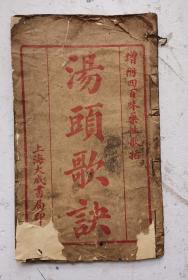 增附四百味藥性歌括
湯頭歌訣
上海大成書局印